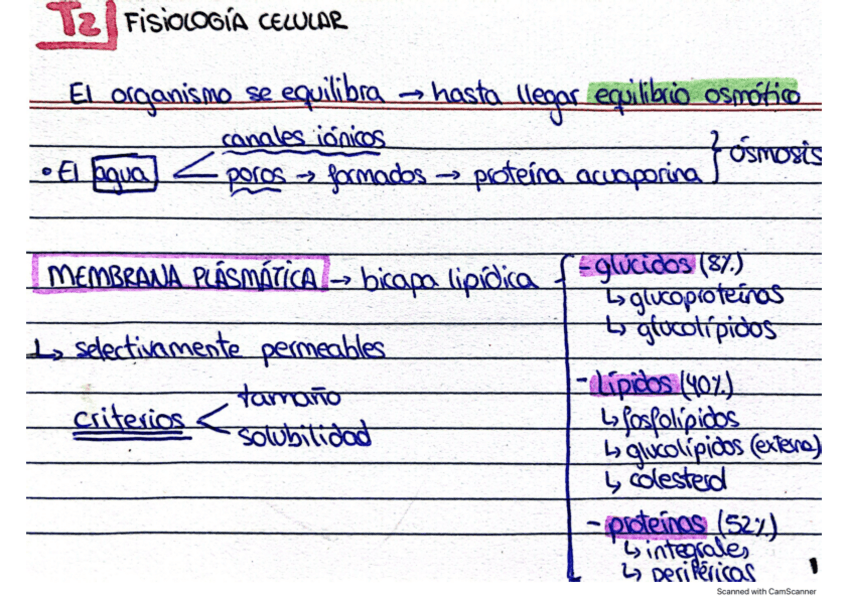 T2 FISIOLOGÍA CELULAR
El organismo se equilibra → hasta llegar equilibrio osmótico
canales iónicos
• El agua < poros → formados → proteína acuaporina } ósmosis
MEMBRANA PLÁSMÁTICA → bicapa lipídica { - glúcidos (8%)
↳ glucoproteínas
↳ glucolípidos
↳ selectivamente permeables
- lípidos (40%)
criterios < tamaño
solubilidad
↳ fosfolípidos
↳ glucolípidos (externa)
↳ colesterol
- proteínas (52%)
↳ integrales
↳ periféricas
Scanned with CamScanner